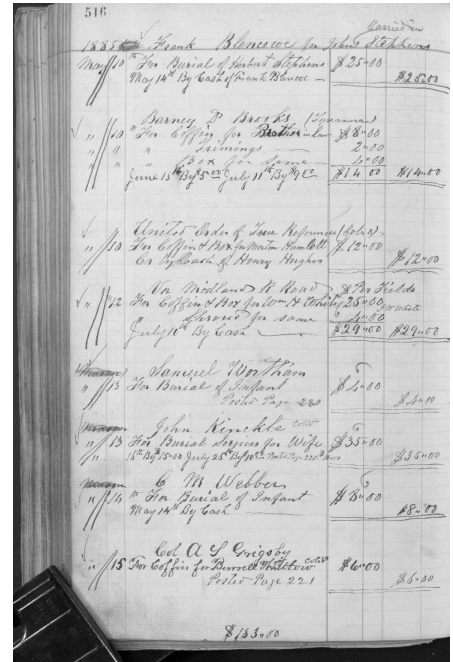 516
Carried on
1885 Frank Blencowe for John Stephens
May 10th For Burial of Hubert Stephens $25"00
May 14th By Cash of Frank Blencoe $25"00
Barney D Brooks
" 10 " For Coffin for Brother in law $8"00
" " " Trimings 2"00
" " Box for Same 4"00
June 15th By 5"00 July 11th By $9 00 $14 00 $14"00
United Order of True Reformers (Cold)
" 10 For Coffin & Box for Hamlett $12"00
Cr By Cash of Henry Hughes $12"00
Va Midland R Road Per Fields
" 12 For Coffin & Box for Wm H White 25"00
" Shroud for same 4"00
July 11th By Cash $29"00 $29"00
Samuel Wortham
" 13 For Burial of Infant $4"00
Posted Page 220 $4"00
John Kinckle Cold
" 13 For Burial Services for Wife $35"00
15th By 15"00 July 25th By $35"00
C M Webber
" 14 " For Burial of Infant $8"00
May 14th By Cash $8"00
Col A S Grigsby
" 15 For Coffin for Burnett Whitlow Cold $6"00
Posted Page 221 $6"00
$133"00